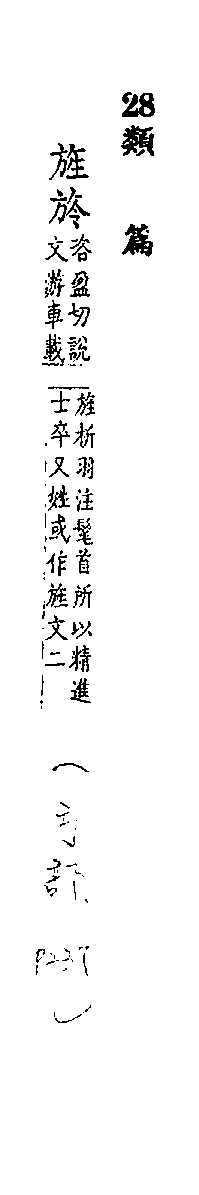 28類篇
旌旍
咨盈切說
文游車載
旌析羽注髦首所以精進
士卒又姓或作旌文二